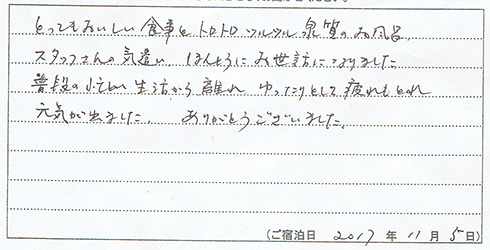 とってもおいしい食事とトロトロツルツル泉質のお風呂、
スタッフさんの気遣い、ほんとうにお世話になりました
普段の忙しい生活から離れ ゆったりとして疲れもとれ
元気が出ました。 ありがとうございました。
(ご宿泊日 2017 年 11 月 5 日)